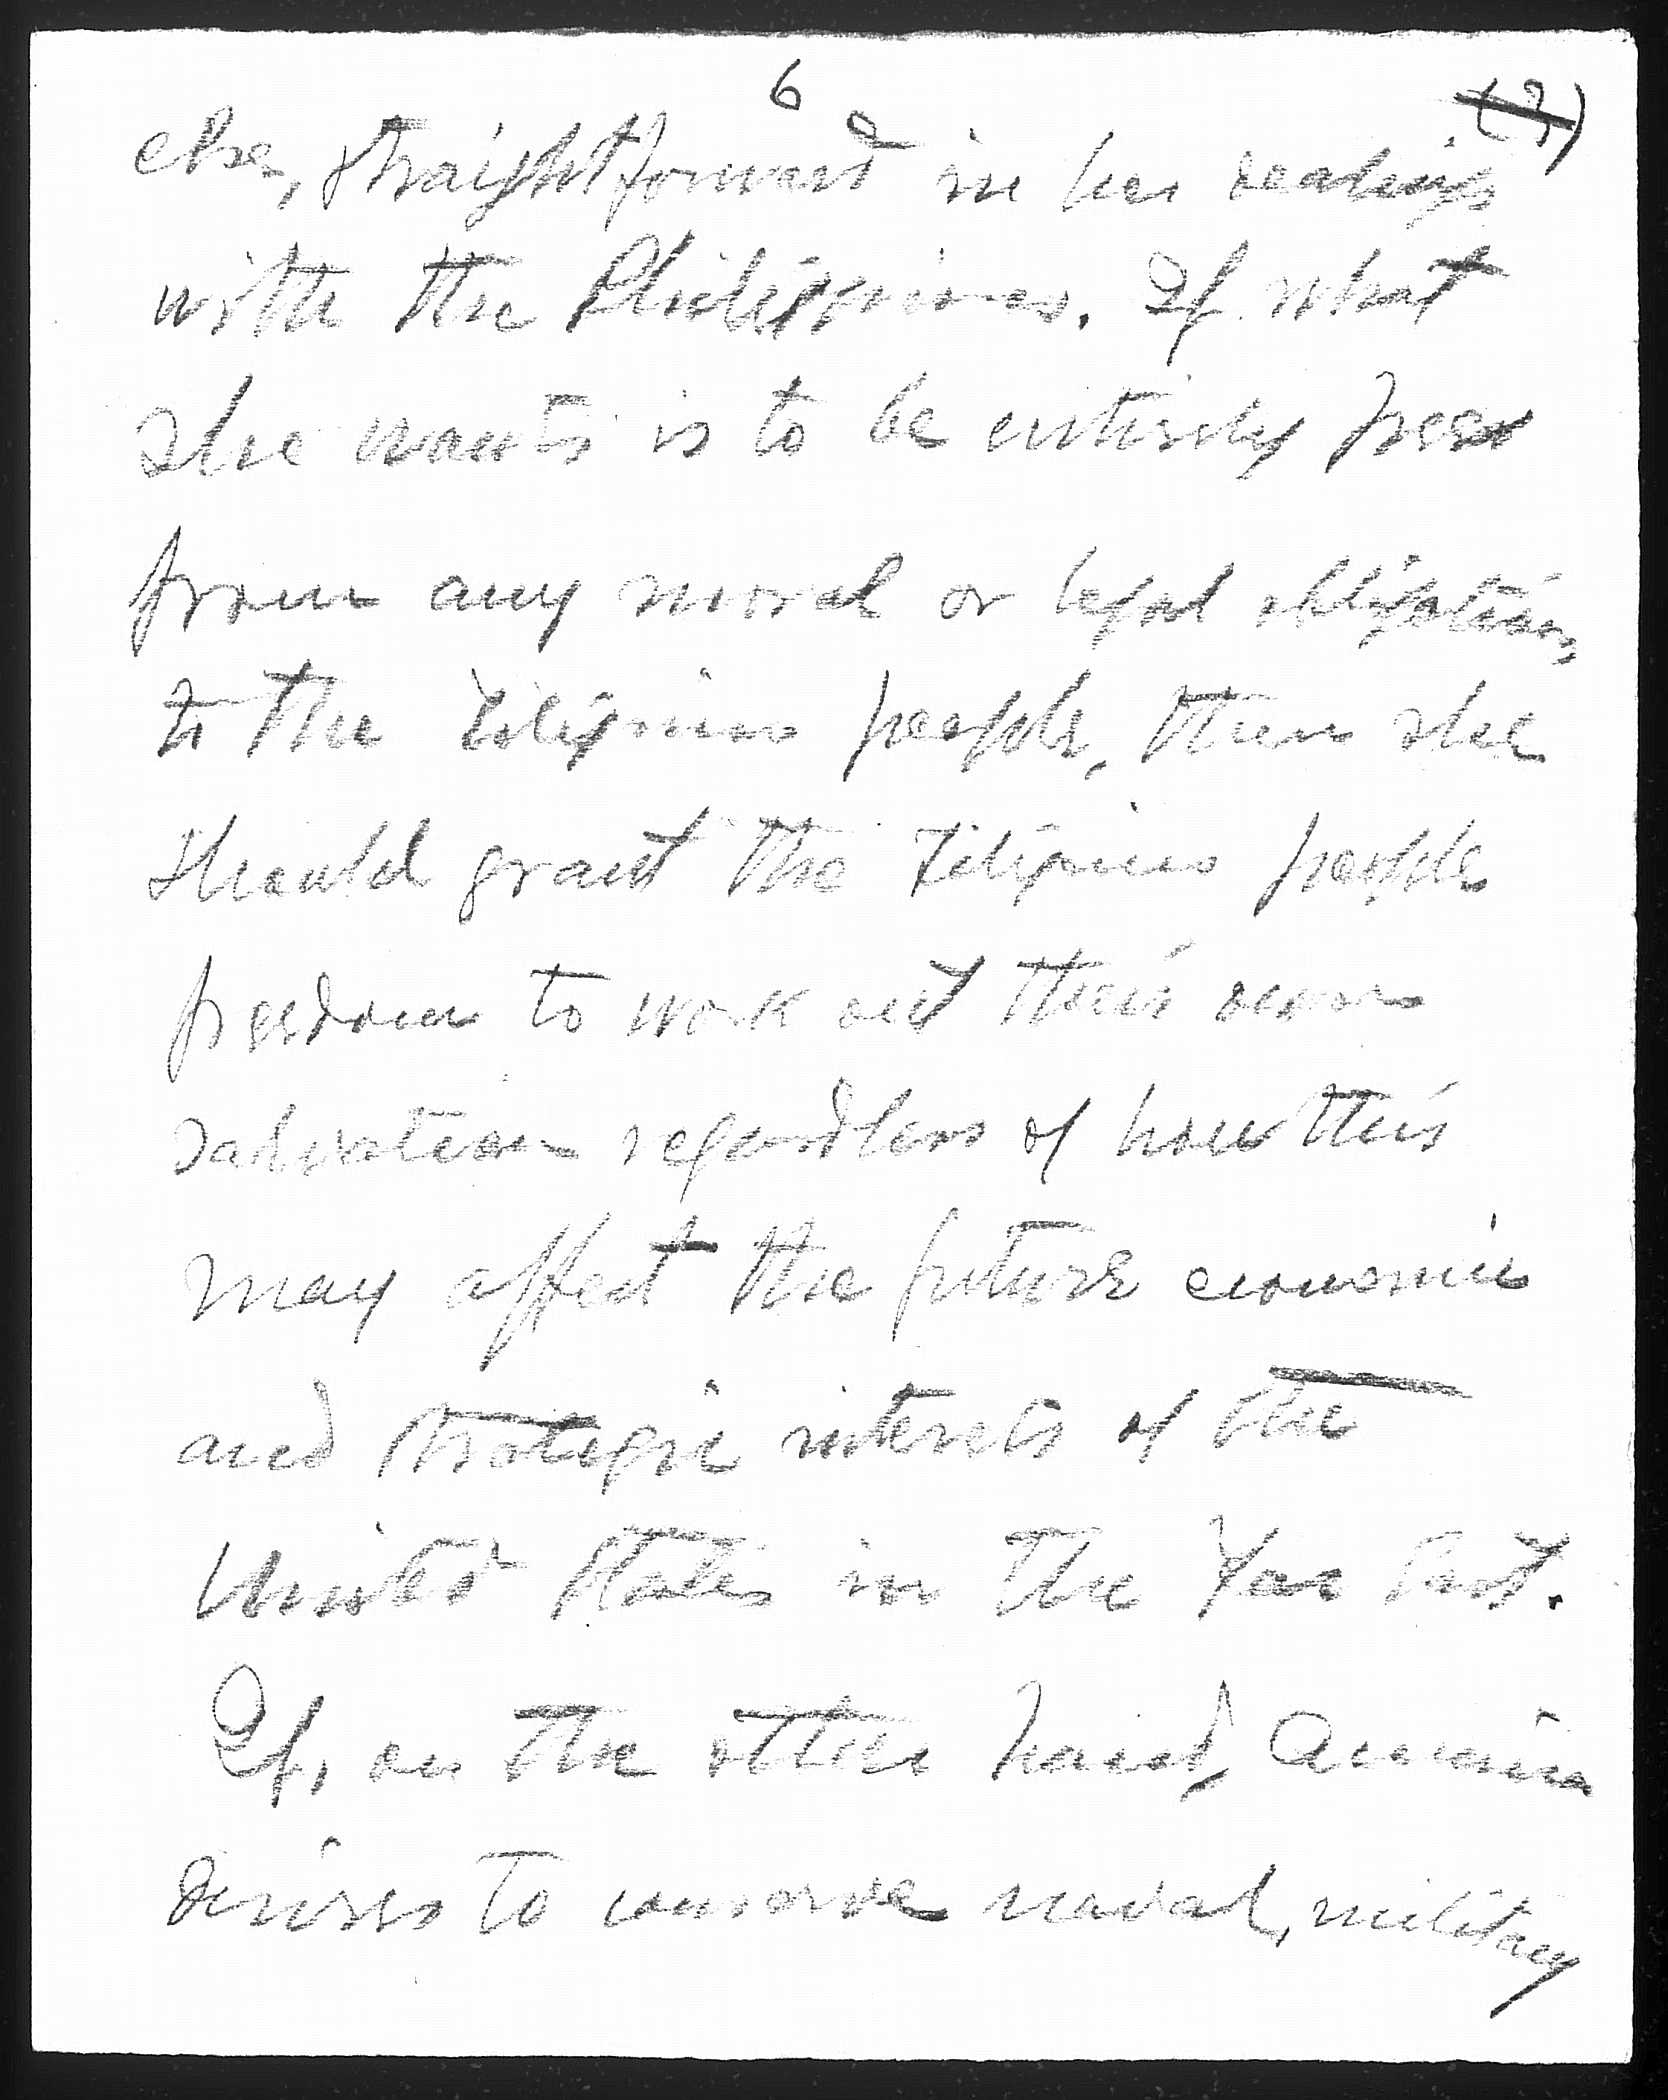 6 (3)
else, straightforward in her dealings
with the Philippines. If what
she wants is to be entirely free
from any moral or legal obligations
to the Filipino people, then she
should grant the Filipino people
freedom to work out their own
salvation regardless of how this
may affect the future economic
and strategic interests of the
United States in the Far East.
If, on the other hand, America
desires to conserve naval, military